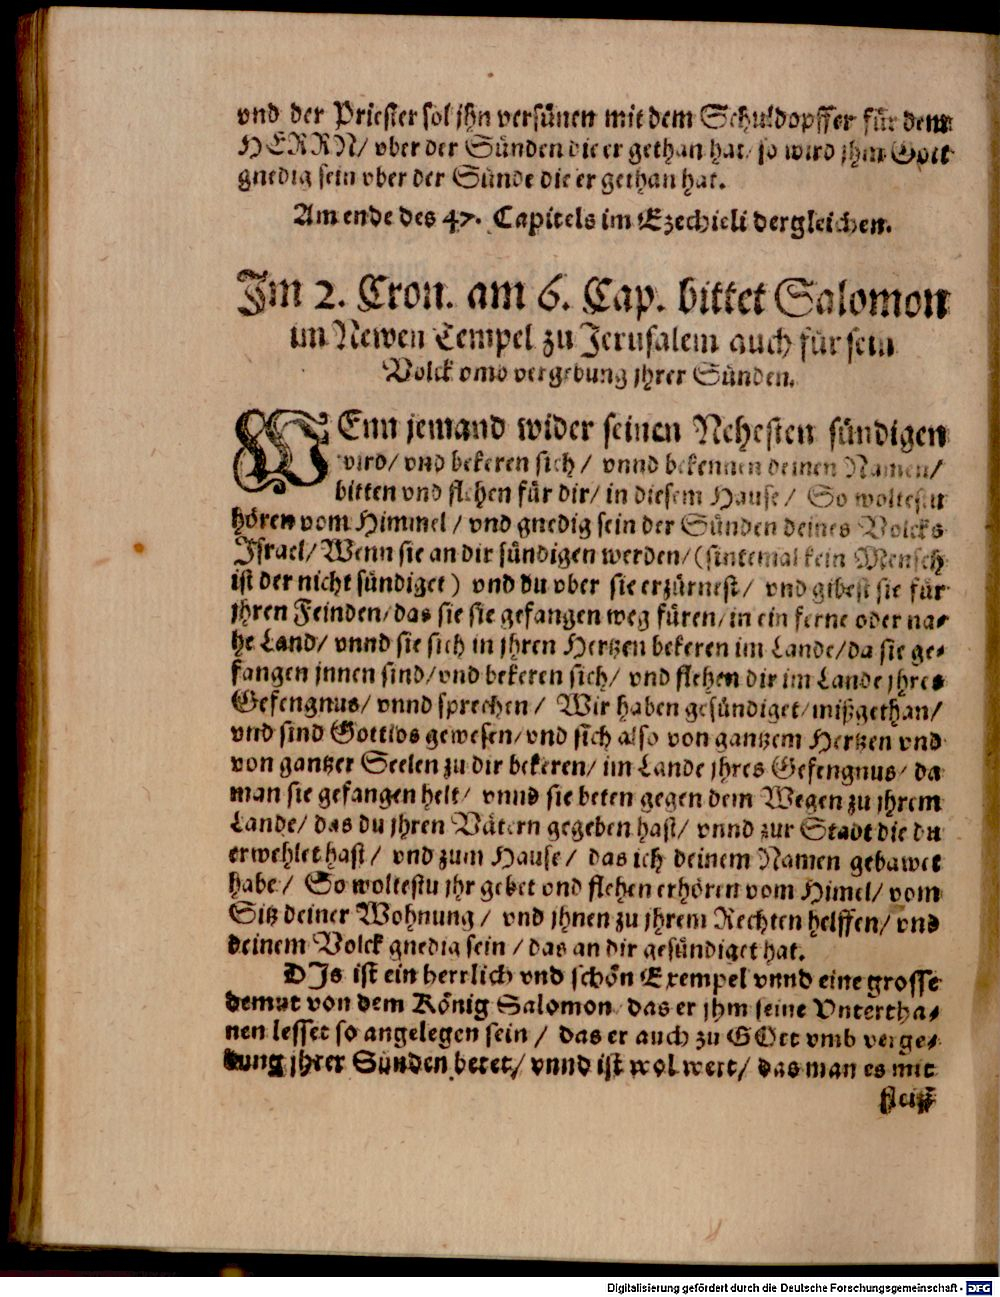 vnd der Priester sol jhn versünen mit dem Schuldopffer für dem
HERRN/ vber der Sünden die er gethan hat/ so wird jhm Gott
gnedig sein vber der Sünde die er gethan hat.
Am ende des 47. Capitels im Ezechieli dergleichen.
Im 2. Cron. am 6. Cap. bittet Salomon
im Newen Tempel zu Jerusalem auch für sein
Volck vmb vergebung jhrer Sünden.
WEnn jemand wider seinen Nehesten sündigen
wird/ vnd bekeren sich/ vnnd bekennen deinen Namen/
bitten vnd flehen für dir/ in diesem Hause/ So woltestu
hören vom Himmel/ vnd gnedig sein der Sünden deines Volcks
Israel/ Wenn sie an dir sündigen werden/ (sintemal kein Mensch
ist der nicht sündiget) vnd du vber sie erzürnest/ vnd gibest sie für
jhren Feinden/ das sie sie gefangen weg füren/ in ein ferne oder na-
he Land/ vnnd sie sich in jhren Hertzen bekeren im Lande/ da sie ge-
fangen jnnen sind/ vnd bekeren sich/ vnd flehen dir im Lande jhres
Gefengnus/ vnnd sprechen/ Wir haben gesündiget/ mißgethan/
vnd sind Gottlos gewesen/ vnd sich also von gantzem Hertzen vnd
von gantzer Seelen zu dir bekeren/ im Lande jhres Gefengnus/ da
man sie gefangen helt/ vnnd sie beten gegen dem Wegen zu jhrem
Lande/ das du jhren Vätern gegeben hast/ vnnd zur Stadt die du
erwehlet hast/ vnd zum Hause/ das ich deinem Namen gebawet
habe/ So woltestu jhr gebet vnd flehen erhören vom Himel/ vom
Sitz deiner Wohnung/ vnd jhnen zu jhrem Rechten helffen/ vnd
deinem Volck gnedig sein/ das an dir gesündiget hat.
DJs ist ein herrlich vnd schön Exempel vnnd eine grosse
demut von dem König Salomon/ das er jhm seine Vntertha-
nen lesset so angelegen sein/ das er auch zu GOtt vmb verge-
bung jhrer Sünden betet/ vnnd ist wol wert/ das man es mit
fleiß
Digitalisierung gefördert durch die Deutsche Forschungsgemeinschaft - DFG